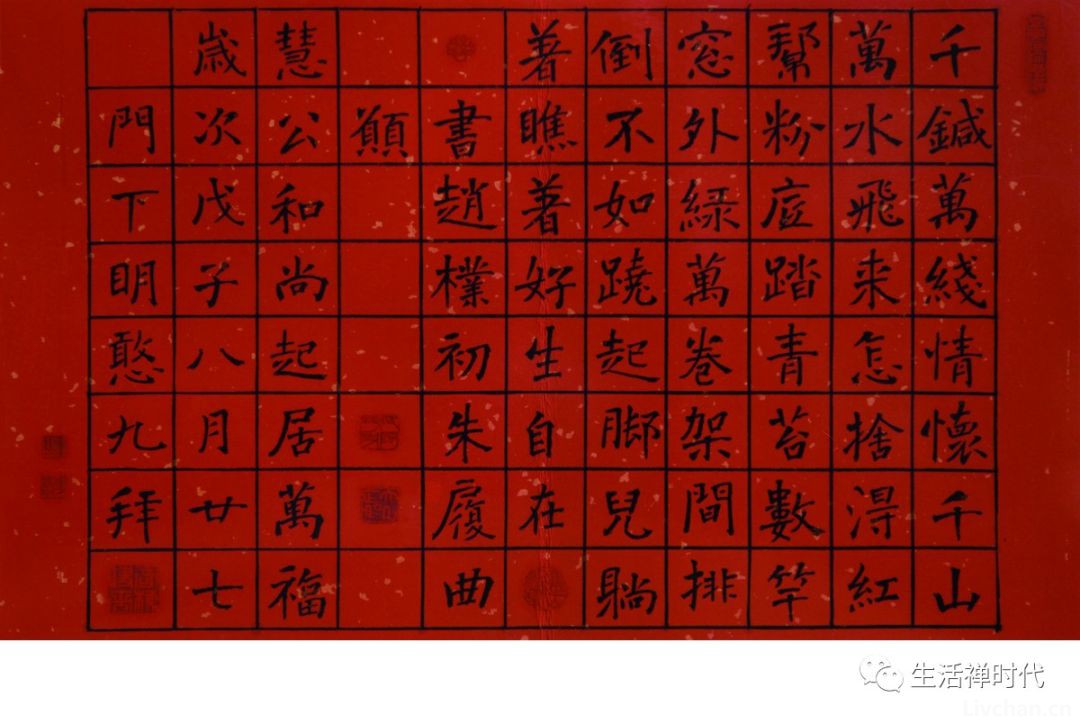 千鍼萬綫情懷千山
萬水飛来怎捨淂紅
幫粉底踏青苔數竿
窓外緑萬卷架間排
倒不如蹺起脚兒躺
著瞧著好生自在
書趙樸初朱履曲
願
慧公和尚起居萬福
歲次戊子八月廿七
門下明憨九拜
生活禅时代
Livchan.cn